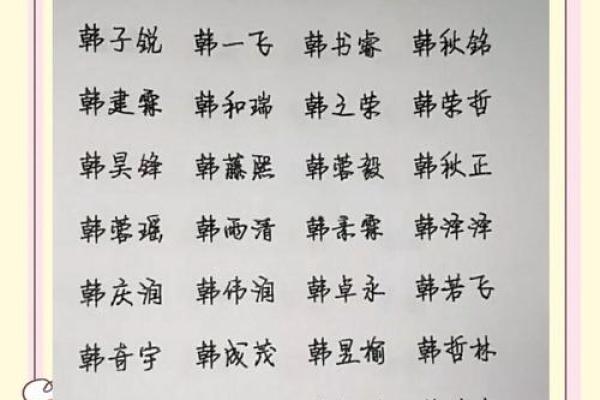 韩子锐 韩一飞 韩书睿 韩秋铭
韩建霖 韩和瑞 韩之荣 韩荣哲
韩昊锋 韩藤熙 韩蓉毅 韩秋正
韩蓉瑶 韩雨清 韩柔霖 韩泽泽
韩庆润 韩伟润 韩卓永 韩若飞
韩奇宇 韩成茂 韩昱榆 韩哲林